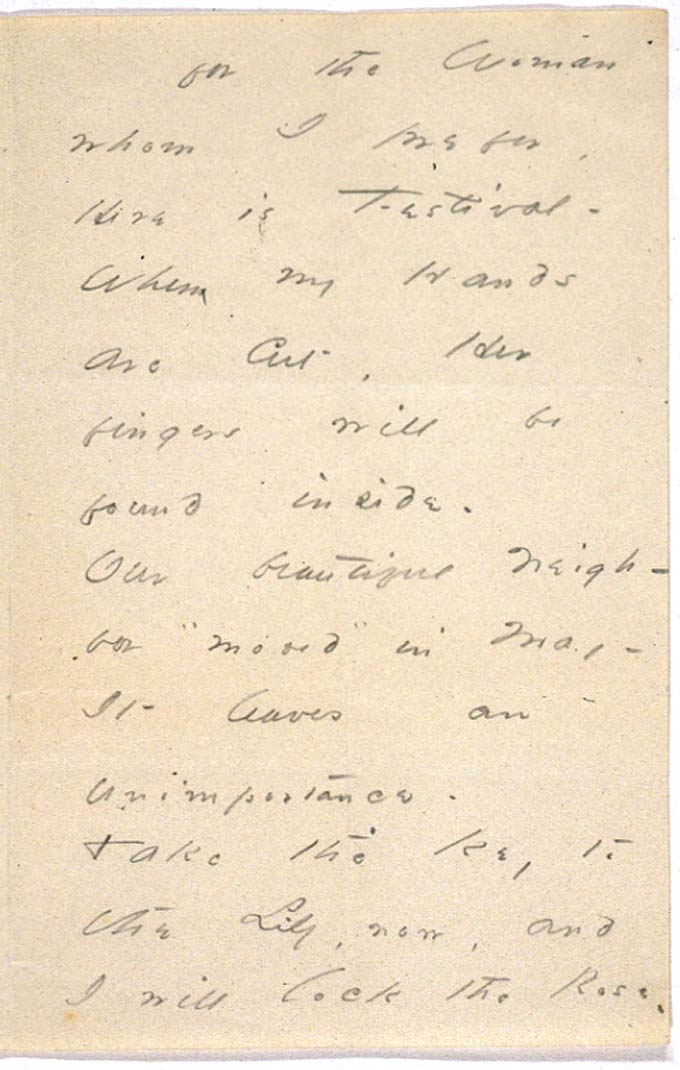 for the Woman
whom I prefer,
Here is Festival -
When my Hands
are Cut, Her
fingers will be
found inside.
Our beautiful Neigh-
bor "moved" in May -
It leaves an
unimportance.
Take the Key to
the Lily, now, and
I will lock the Rose.